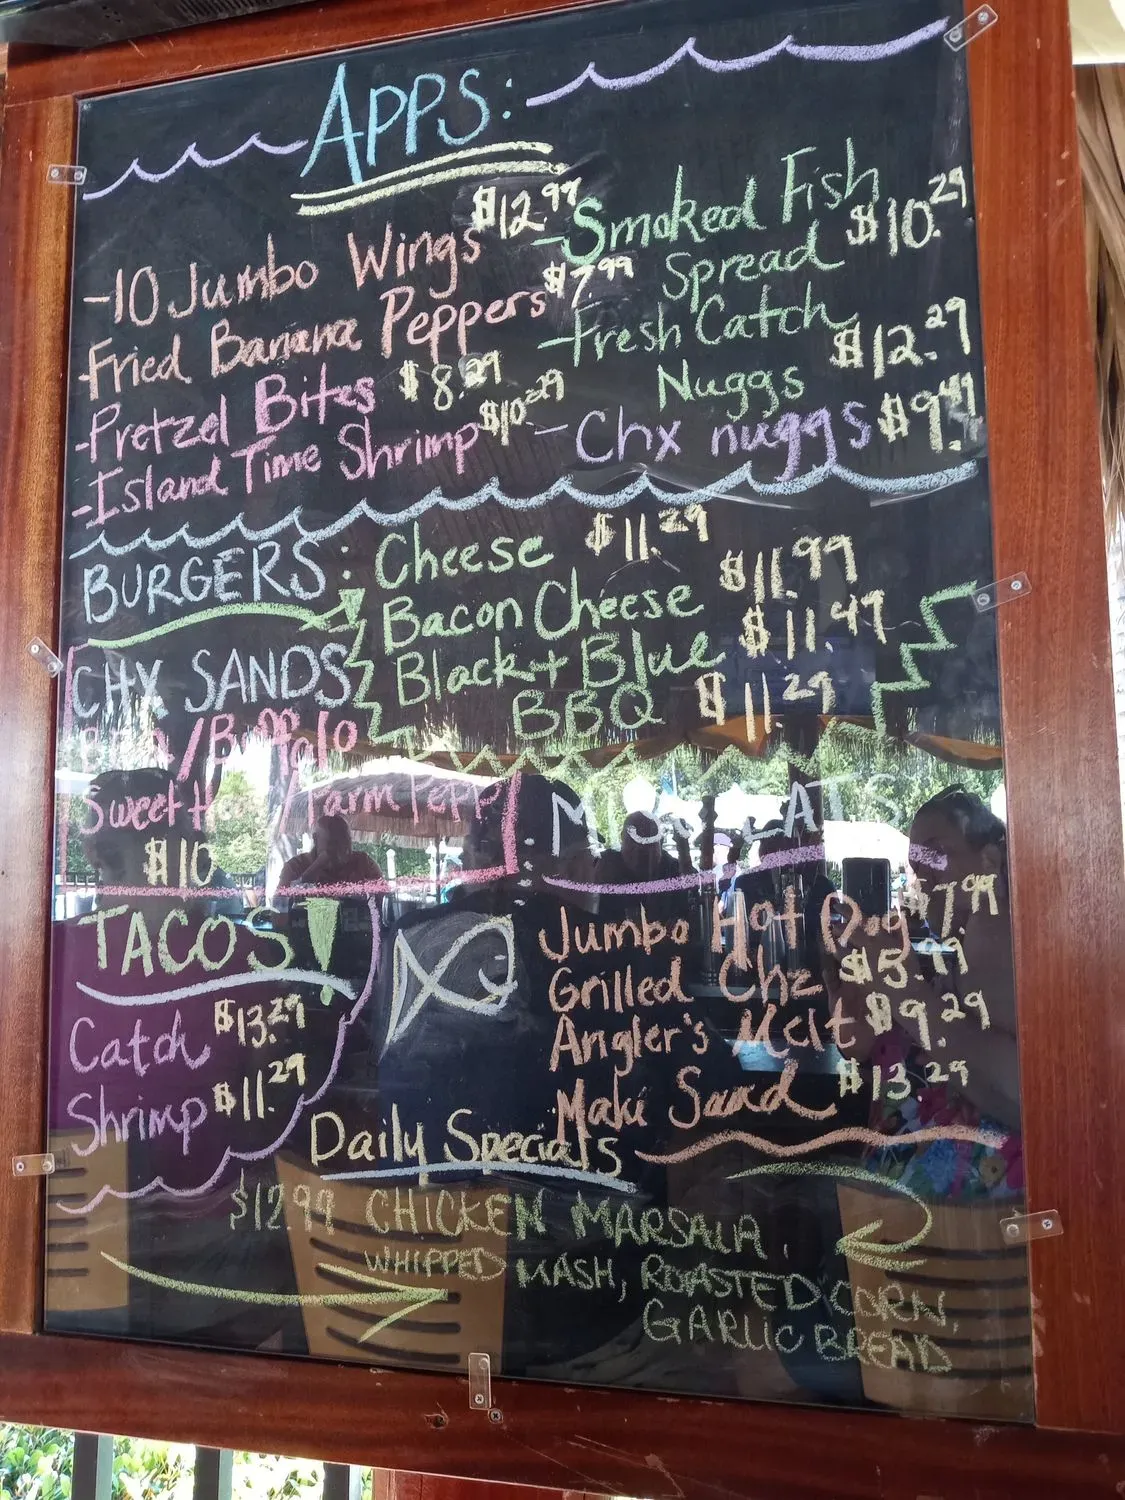 APPS:
-10 Jumbo Wings $12.99
-Fried Banana Peppers $7.99
-Pretzel Bites $8.29
-Island Time Shrimp $10.29
-Smoked Fish
Spread $10.29
-Fresh Catch
Nuggs $12.29
-Chx nuggs $9.49
BURGERS:
Cheese $11.29
Bacon Cheese $11.99
Black + Blue $11.49
BBQ $11.29
CHX SANDS
BBQ/Buffalo
Sweet /Parm Pepp
$10
TACOS!
Catch $13.29
Shrimp $11.29
Jumbo Hot Dog $7.99
Grilled Chz $5.99
Angler's Melt $9.29
Mahi Sand $13.29
Daily Specials
$12.99 CHICKEN MARSALA,
WHIPPED MASH, ROASTED CORN,
GARLIC BREAD